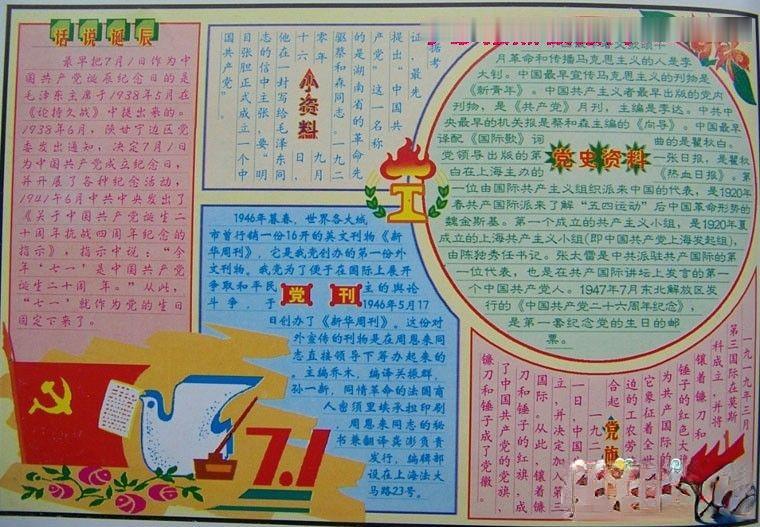 话说诞辰
最早把7月1日作为中
国共产党诞辰纪念日的是
毛泽东主席于1938年5月在
《论持久战》中提出来的。
1938年6月，陕甘宁边区党
委发出通知，决定7月1日
为中国共产党成立纪念日，
并开展了各种纪念活动，
1941年6月中共中央发出了
《关于中国共产党诞生二
十周年抗战四周年纪念的
指示》，指示中说：“今
年‘七一’是中国共产党
诞生二十周年。”从此，
“七一”就作为党的生日
固定下来了。
小资料
据考
证，最先
提出“中国共
产党”这一名称
的是湖南省的革命先
驱蔡和森同志。一九二
零年九月
十六日，
他在一封给毛泽东同
志的信中主张，要“明
目张胆正式成立一个中
国共产党”。
党刊
1946年暮春，世界各大城
市首行销一份16开的英文刊物《新
华周刊》，它是我党创办的第一份外
文刊物。我党为了便于在国际上展开
争取和平民主的舆论
斗争，于1946年5月17
日创办了《新华周刊》。这份对
外宣传的刊物是在周恩来同
志直接领导下筹办起来的
。主编乔木，编译关振群，
孙一新，同情革命的法国商
人密须里埃承担印刷
，周恩来同志的秘
书兼翻译龚澎负责
发行，编辑部
设在上海法大
马路23号。
党史资料
月革命和传播马克思主义的人是李
大钊。中国最早宣传马克思主义的刊物是
《新青年》。中国共产主义者最早出版的党内
刊物，是《共产党》月刊，主编是李达。中共中
央最早的机关报是蔡和森主编的《向导》。中国最早
译配《国际歌》词曲的是瞿秋白。
党领导出版的第一张日报，是瞿秋
白在上海主办的《热血日报》。第
一位由国际共产主义组织派来中国的代表，是1920年
春共产国际派来了解“五四运动”后中国革命形势的
魏金斯基。第一个成立的共产主义小组，是1920年夏
成立的上海共产主义小组(即中国共产党上海发起组)，
由陈独秀任书记。张太雷是中共派驻共产国际的第
一位代表，也是在共产国际讲坛上发言的第一
个中国共产党人。1947年7月东北解放区发
行的《中国共产党二十六周年纪念》，
是第一套纪念党的生日的邮
票。
党旗
一九一九年三月，
第三国际在莫斯
科成立，并将
镶着镰刀和
锤子的红色大
为共产国际的
它象征着全世
边的工农劳
合起
一九
一日，中国
立，并决定加入第三
国际。从此，镶着镰
刀和锤子的红旗，成
了中国共产党的党旗，
镰刀和锤子成了党徽。
7.1